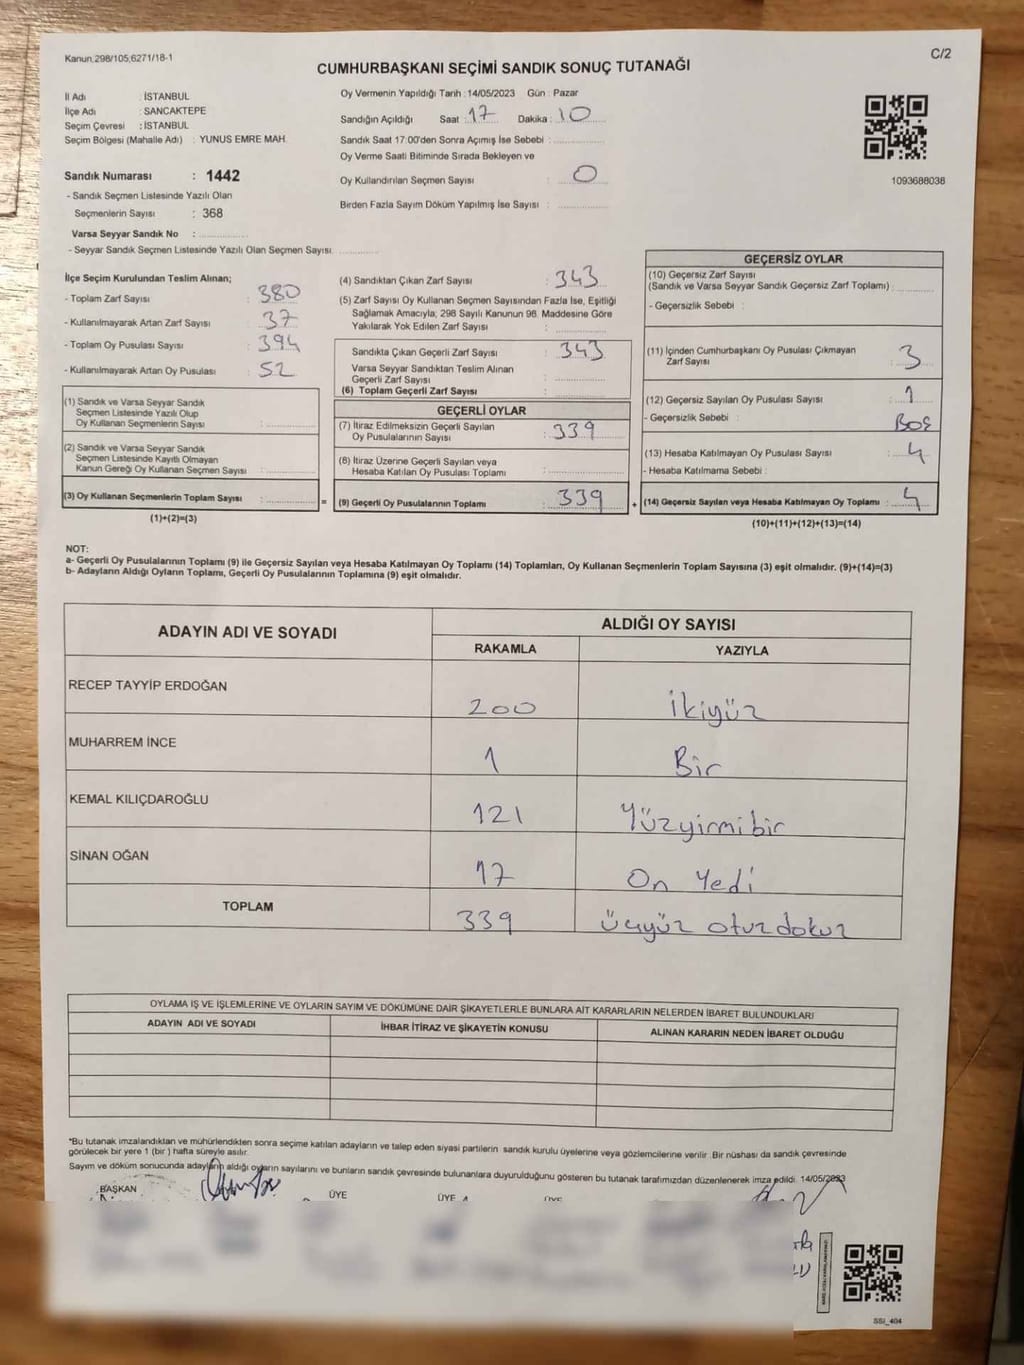 Kanun;298/105;6271/18-1
C/2
CUMHURBAŞKANI SEÇİMİ SANDIK SONUÇ TUTANAĞI
İl Adı : İSTANBUL
İlçe Adı : SANCAKTEPE
Seçim Çevresi : İSTANBUL
Seçim Bölgesi (Mahalle Adı) : YUNUS EMRE MAH.
Sandık Numarası : 1442
- Sandık Seçmen Listesinde Yazılı Olan
Seçmenlerin Sayısı : 368
Varsa Seyyar Sandık No :
- Seyyar Sandık Seçmen Listesinde Yazılı Olan Seçmen Sayısı
Oy Vermenin Yapıldığı Tarih :14/05/2023 Gün : Pazar
Sandığın Açıldığı Saat : 17 Dakika : 10
Sandık Saat 17:00'den Sonra Açımış İse Sebebi :
Oy Verme Saati Bitiminde Sırada Bekleyen ve
Oy Kullandırılan Seçmen Sayısı : 0
Birden Fazla Sayım Döküm Yapılmış İse Sayısı :
1093688038
İlçe Seçim Kurulundan Teslim Alınan;
- Toplam Zarf Sayısı : 380
- Kullanılmayarak Artan Zarf Sayısı : 37
- Toplam Oy Pusulası Sayısı : 394
- Kullanılmayarak Artan Oy Pusulası : 52
(1) Sandık ve Varsa Seyyar Sandık
Seçmen Listesinde Yazılı Olup
Oy Kullanan Seçmenlerin Sayısı :
(2) Sandık ve Varsa Seyyar Sandık
Seçmen Listesinde Kayıtlı Olmayan
Kanun Gereği Oy Kullanan Seçmen Sayısı :
(3) Oy Kullanan Seçmenlerin Toplam Sayısı :
(1)+(2)=(3)
=
(4) Sandıktan Çıkan Zarf Sayısı : 343
(5) Zarf Sayısı Oy Kullanan Seçmen Sayısından Fazla İse, Eşitliği
Sağlamak Amacıyla; 298 Sayılı Kanunun 98. Maddesine Göre
Yakılarak Yok Edilen Zarf Sayısı :
Sandıkta Çıkan Geçerli Zarf Sayısı : 343
Varsa Seyyar Sandıktan Teslim Alınan
Geçerli Zarf Sayısı :
(6) Toplam Geçerli Zarf Sayısı :
GEÇERLİ OYLAR
(7) İtiraz Edilmeksizin Geçerli Sayılan
Oy Pusulalarının Sayısı : 339
(8) İtiraz Üzerine Geçerli Sayılan veya
Hesaba Katılan Oy Pusulası Toplamı :
(9) Geçerli Oy Pusulalarının Toplamı : 339
+
GEÇERSİZ OYLAR
(10) Geçersiz Zarf Sayısı
(Sandık ve Varsa Seyyar Sandık Geçersiz Zarf Toplamı) :
- Geçersizlik Sebebi :
(11) İçinden Cumhurbaşkanı Oy Pusulası Çıkmayan
Zarf Sayısı : 3
(12) Geçersiz Sayılan Oy Pusulası Sayısı : 1
- Geçersizlik Sebebi : BOŞ
(13) Hesaba Katılmayan Oy Pusulası Sayısı : 4
- Hesaba Katılmama Sebebi :
(14) Geçersiz Sayılan veya Hesaba Katılmayan Oy Toplamı : 4
(10)+(11)+(12)+(13)=(14)
NOT:
a- Geçerli Oy Pusulalarının Toplamı (9) ile Geçersiz Sayılan veya Hesaba Katılmayan Oy Toplamı (14) Toplamları, Oy Kullanan Seçmenlerin Toplam Sayısına (3) eşit olmalıdır. (9)+(14)=(3)
b- Adayların Aldığı Oyların Toplamı, Geçerli Oy Pusulalarının Toplamına (9) eşit olmalıdır.
ADAYIN ADI VE SOYADI
ALDIĞI OY SAYISI
RAKAMLA YAZIYLA
RECEP TAYYİP ERDOĞAN 200 İkiyüz
MUHARREM İNCE 1 Bir
KEMAL KILIÇDAROĞLU 121 Yüzyirmibir
SİNAN OĞAN 17 On Yedi
TOPLAM 339 üçyüz otuzdokuz
OYLAMA İŞ VE İŞLEMLERİNE VE OYLARIN SAYIM VE DÖKÜMÜNE DAİR ŞİKAYETLERLE BUNLARA AİT KARARLARIN NELERDEN İBARET BULUNDUKLARI
ADAYIN ADI VE SOYADI İHBAR İTİRAZ VE ŞİKAYETİN KONUSU ALINAN KARARIN NEDEN İBARET OLDUĞU
*Bu tutanak imzalandıktan ve mühürlendikten sonra seçime katılan adayların ve talep eden siyasi partilerin sandık kurulu üyelerine veya gözlemcilerine verilir. Bir nüshası da sandık çevresinde
görülecek bir yere 1 (bir ) hafta süreyle asılır.
Sayım ve döküm sonucunda adayların aldığı oyların sayılarını ve bunların sandık çevresinde bulunanlara duyurulduğunu gösteren bu tutanak tarafımızdan düzenlenerek imza edildi. 14/05/2023
BAŞKAN ÜYE ÜYE ÜYE
SSI_404